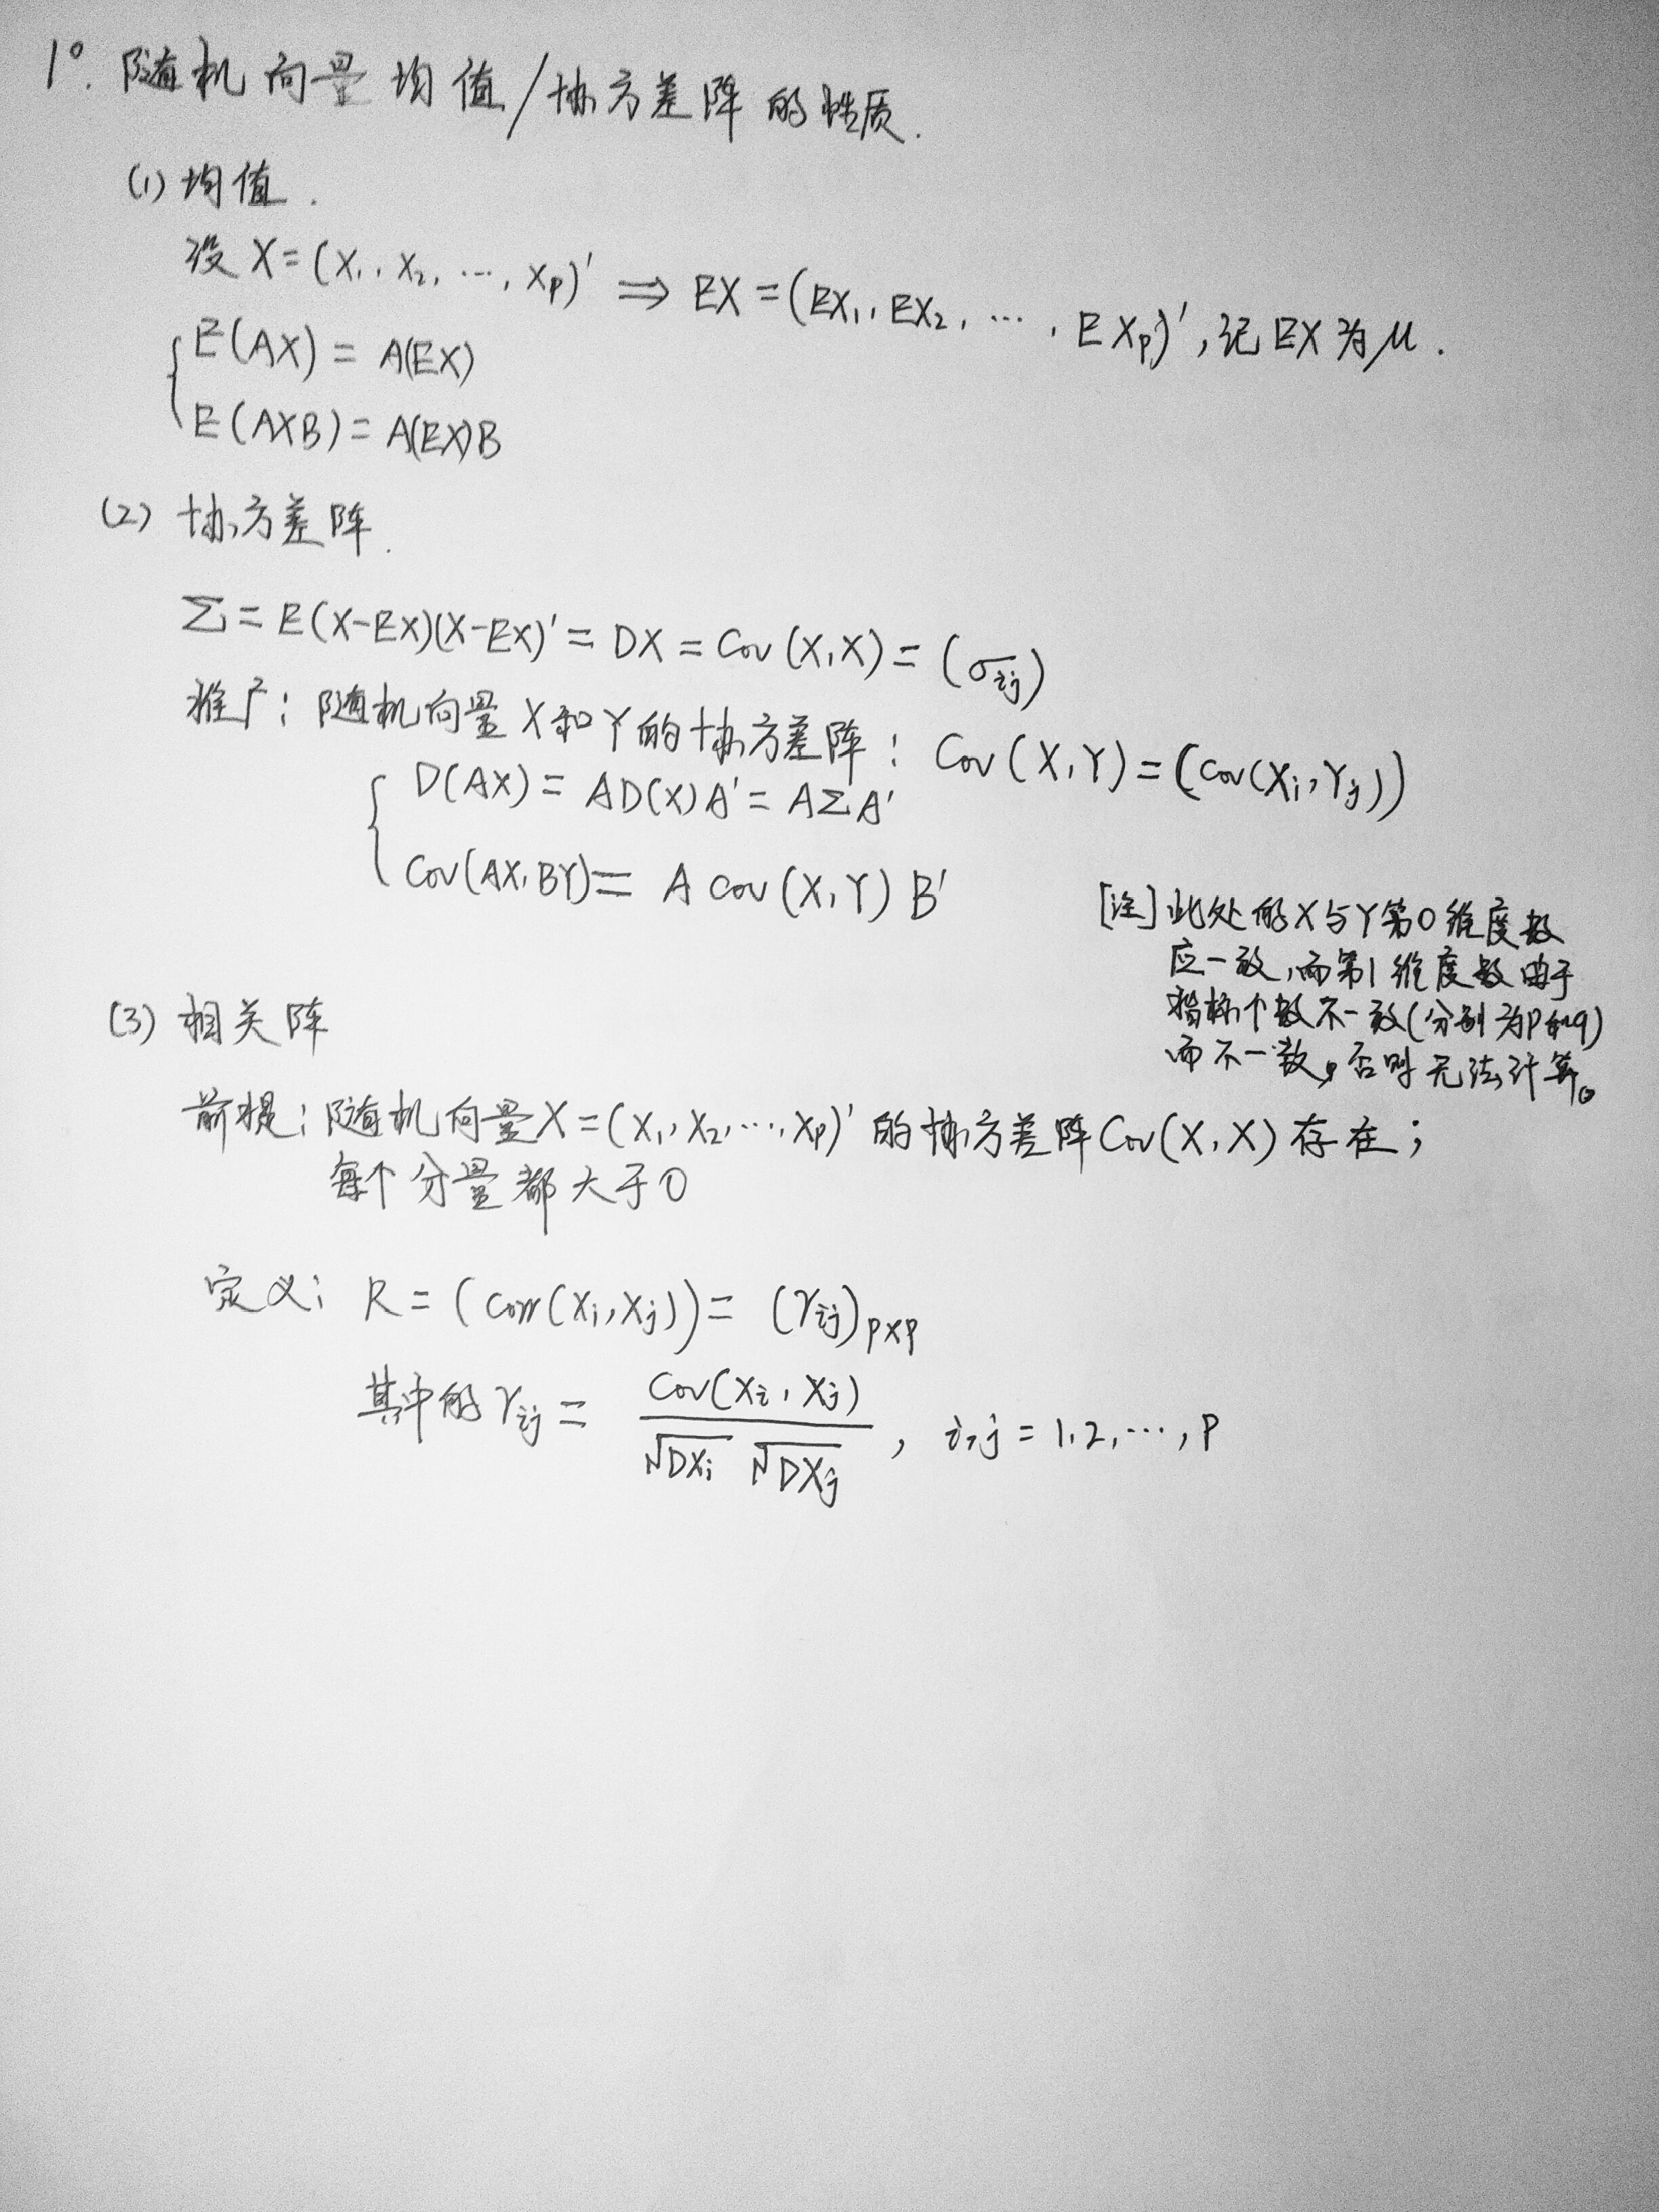 1°. 随机向量均值/协方差阵的性质.
(1) 均值.
设 X=(X₁, X₂, ⋯, Xp)' ⇒ EX=(EX₁, EX₂, ⋯, EXp)', 记EX为μ.
{ E(AX) = A(EX)
E(AXB) = A(EX)B
(2) 协方差阵.
Σ = E(X-EX)(X-EX)' = DX = Cov(X,X) = (σij)
推广: 随机向量X和Y的协方差阵: Cov(X,Y)=(Cov(Xi,Yj))
{ D(AX) = AD(X)A' = AΣA'
Cov(AX,BY) = A cov(X,Y) B'
[注] 此处的X与Y第0维度数
应一致,而第1维度数由于
指标个数不一致(分别为p和q)
而不一致,否则无法计算。
(3) 相关阵
前提: 随机向量X=(X₁,X₂,⋯,Xp)'的协方差阵Cov(X,X)存在;
每个分量都大于0
定义: R = (Corr(Xi,Xj)) = (γij)p×p
其中的γij = Cov(Xi,Xj) / √DXi √DXj , i,j = 1,2,⋯,p